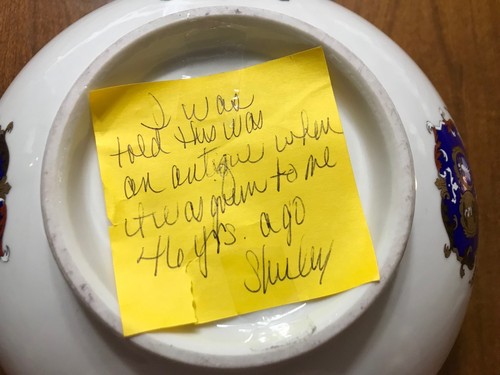 I was
told this was
an antique when
it was given to me
46 yrs. ago
Shirley